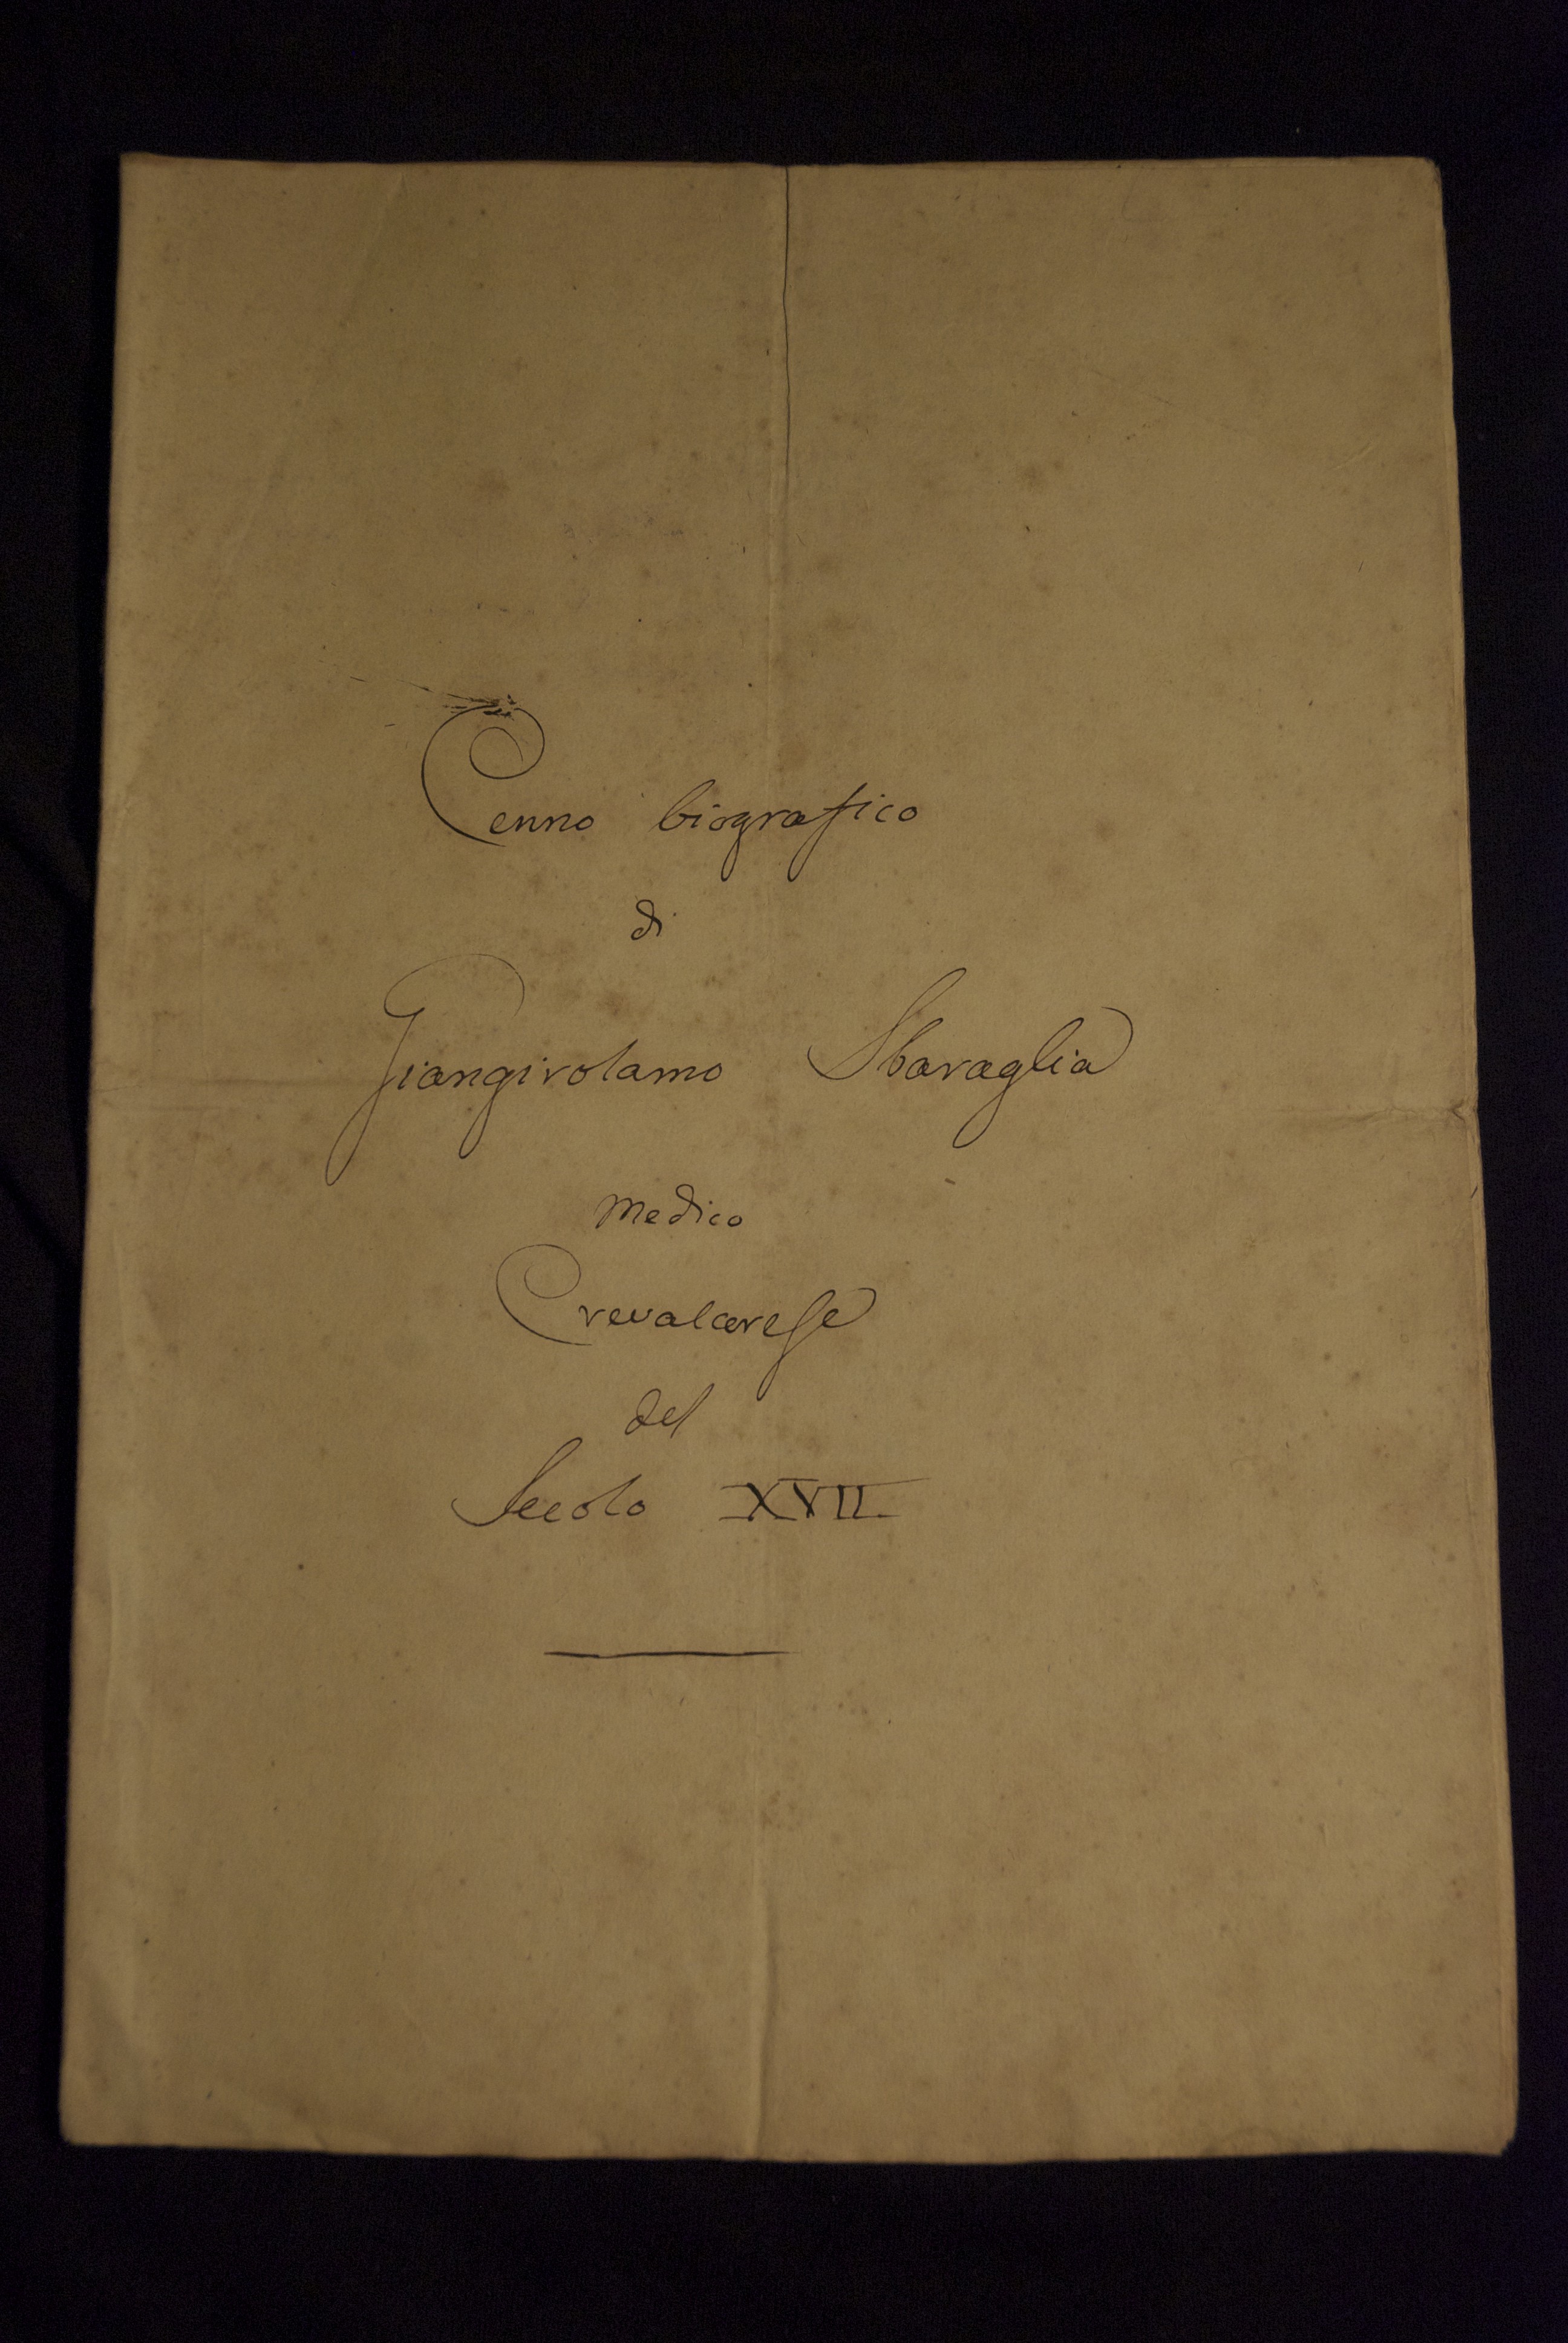 Cenno biografico
di
Giangirolamo Sbaraglia
Medico
Crevalcorese
del
Secolo XVII